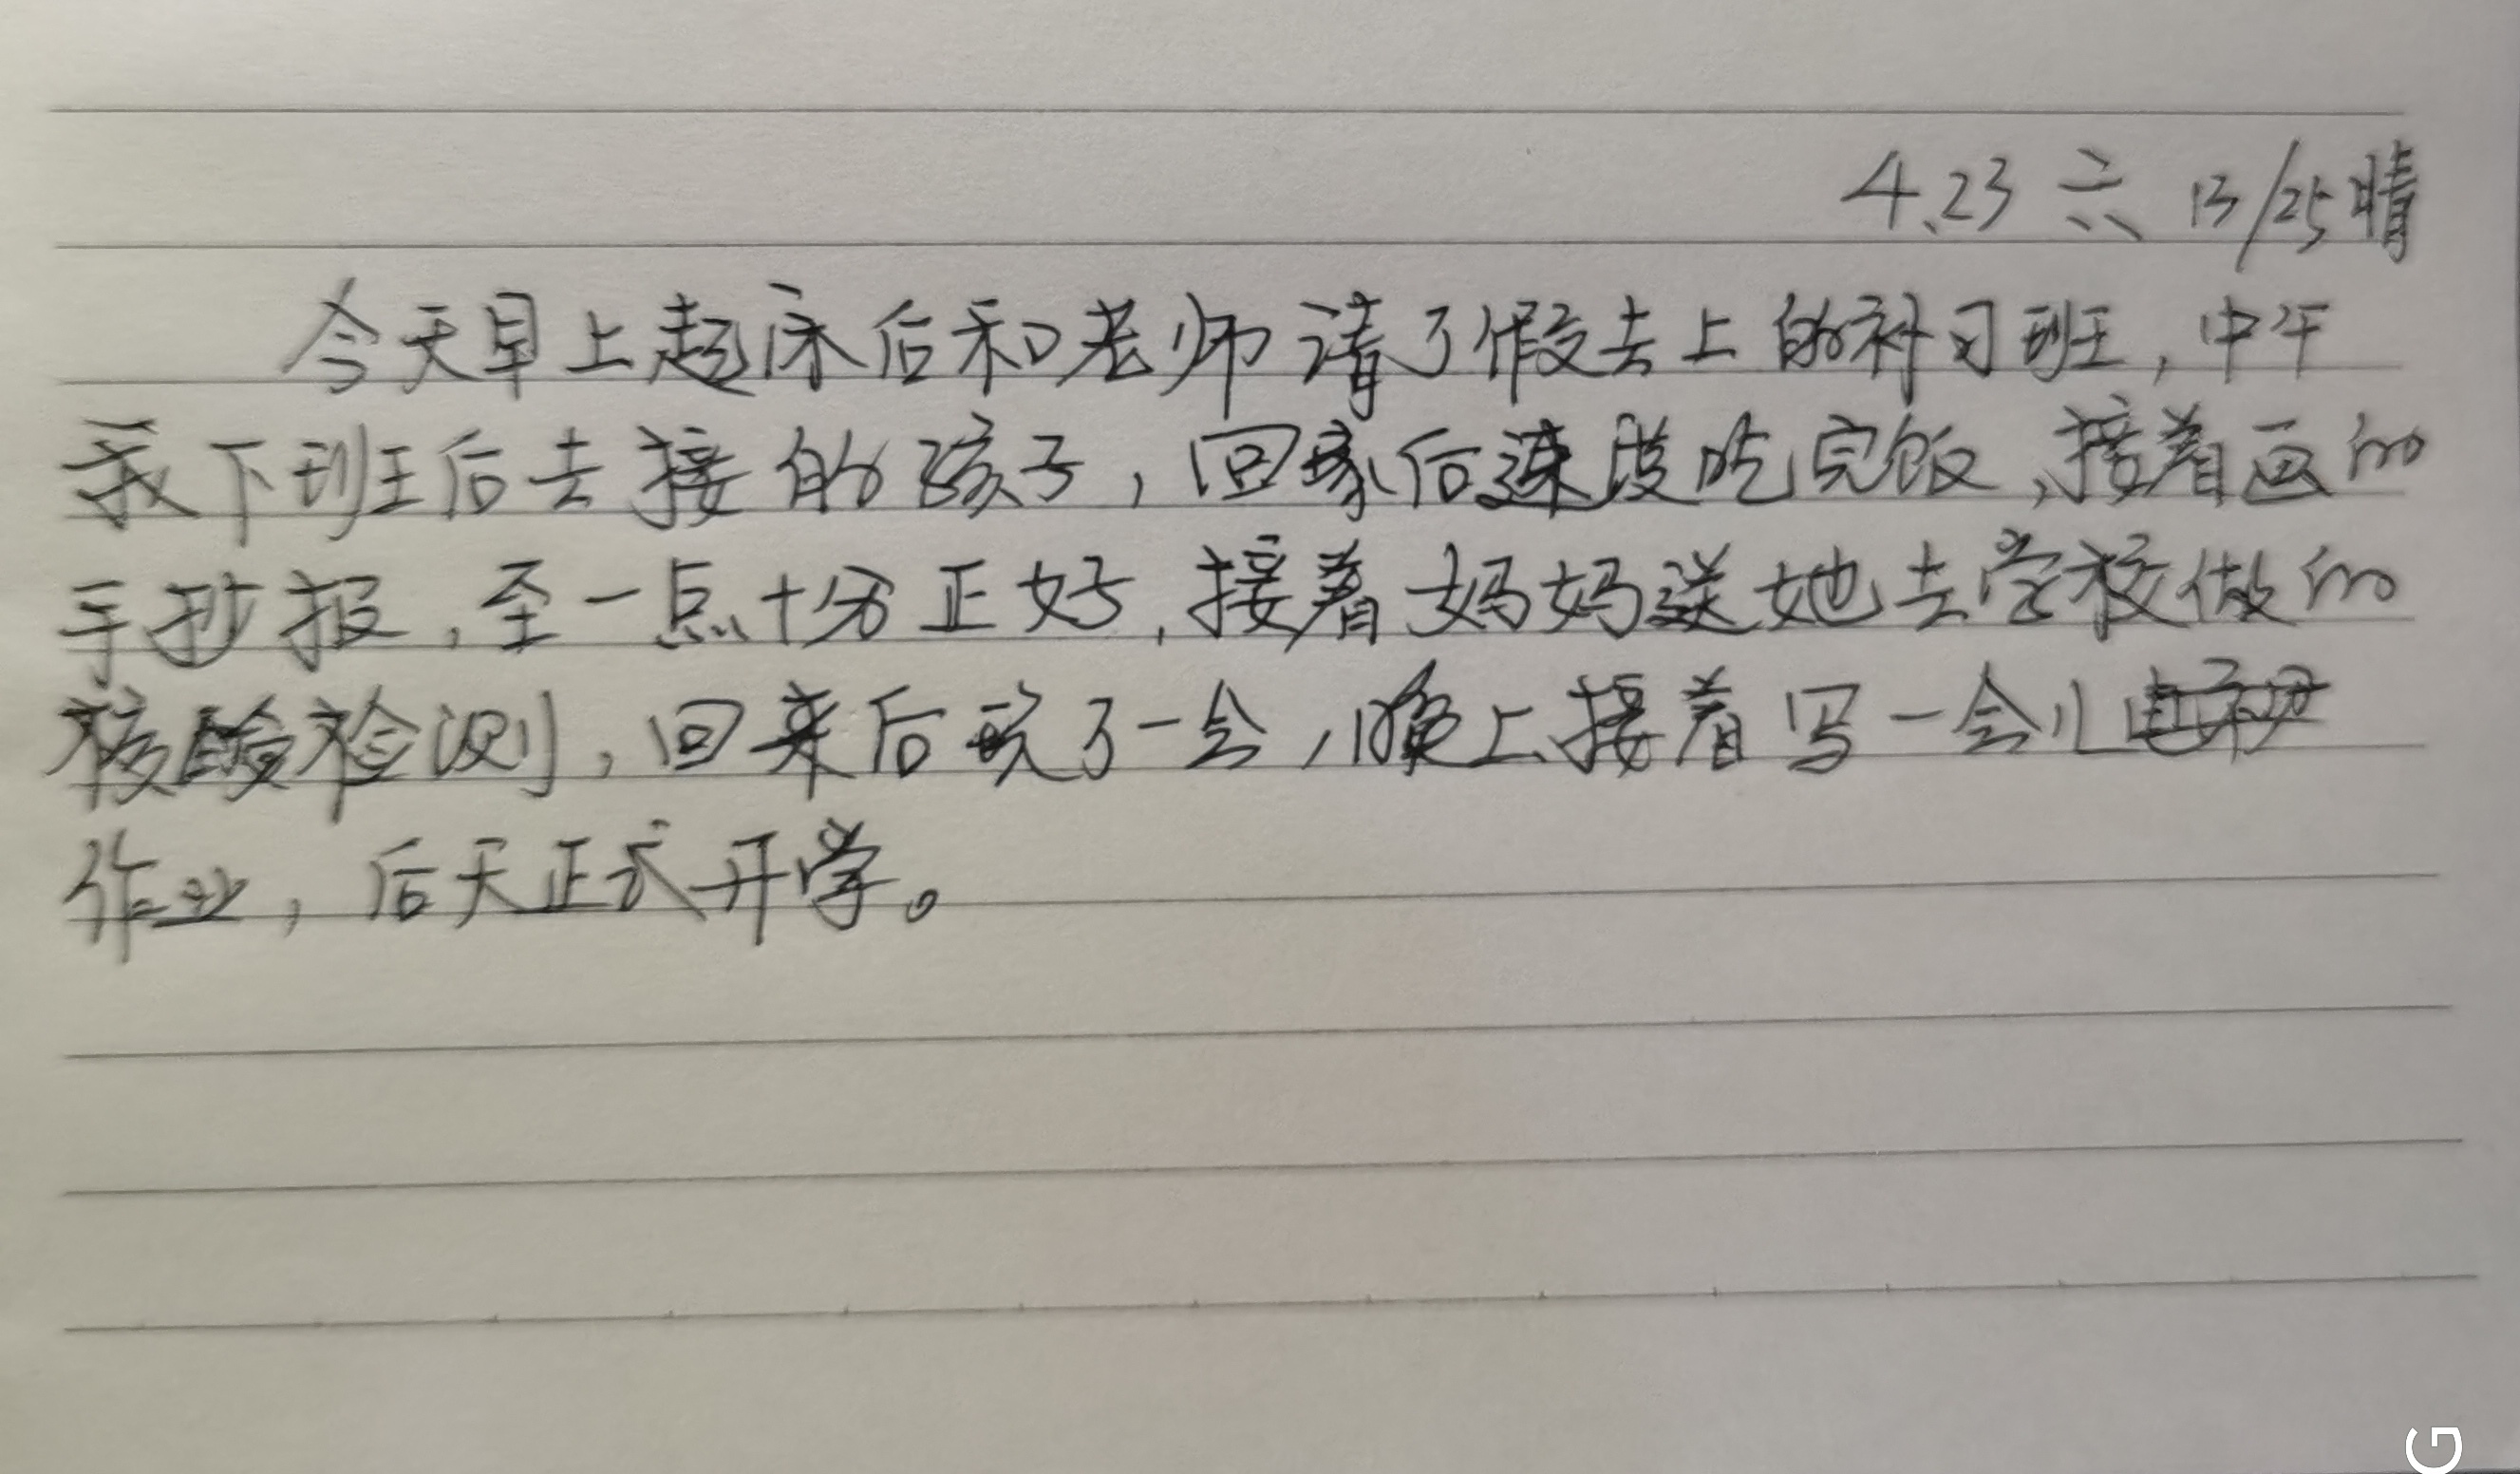 4.23 六 13/25晴
今天早上起床后和老师请了假去上的补习班，中午
我下班后去接的孩子，回家后速度吃完饭，接着画的
手抄报，至一点十分正好，接着妈妈送她去学校做的
核酸检测，回来后玩了一会，晚上接着写一会儿
作业，后天正式开学。
G